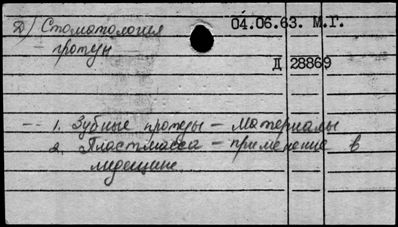 Д) Стоматология
04.06.63. М.Г.
протезы
Д 28869
— 1. Зубные протезы — Материалы
2. Пластмасса — применение в
медицине